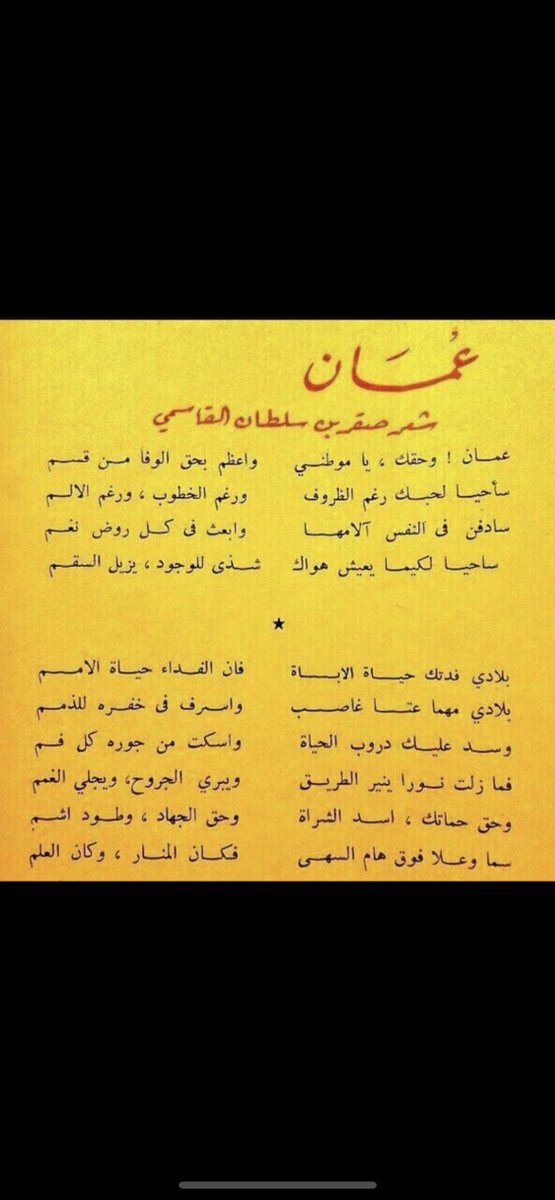 عُمَان
شعر صقر بن سلطان القاسمي
عمـان ! وحقك ، يا موطنـي واعظم بحق الوفا مـن قسـم
سأحيـا لحبـك رغم الظروف ورغم الخطوب ، ورغم الالـم
سادفن فى النفس آلامهـا وابعث فى كـل روض نغـم
ساحيـا لكيمـا يعيش هواك شـذى للوجود ، يزيل السقـم
★
بلادي فدتك حيـاة الابـاة فان الفـداء حيـاة الامـم
بلادي مهما عتـا غاصـب واسرف فى خفـره للذمـم
وسـد عليـك دروب الحياة واسكت من جوره كل فـم
فما زلت نـورا ينير الطريـق ويبري الجروح، ويجلي الغمم
وحق حماتك ، اسد الشراة وحق الجهاد ، وطـود اشـم
سما وعـلا فوق هام السهـى فكـان المنـار ، وكان العلم